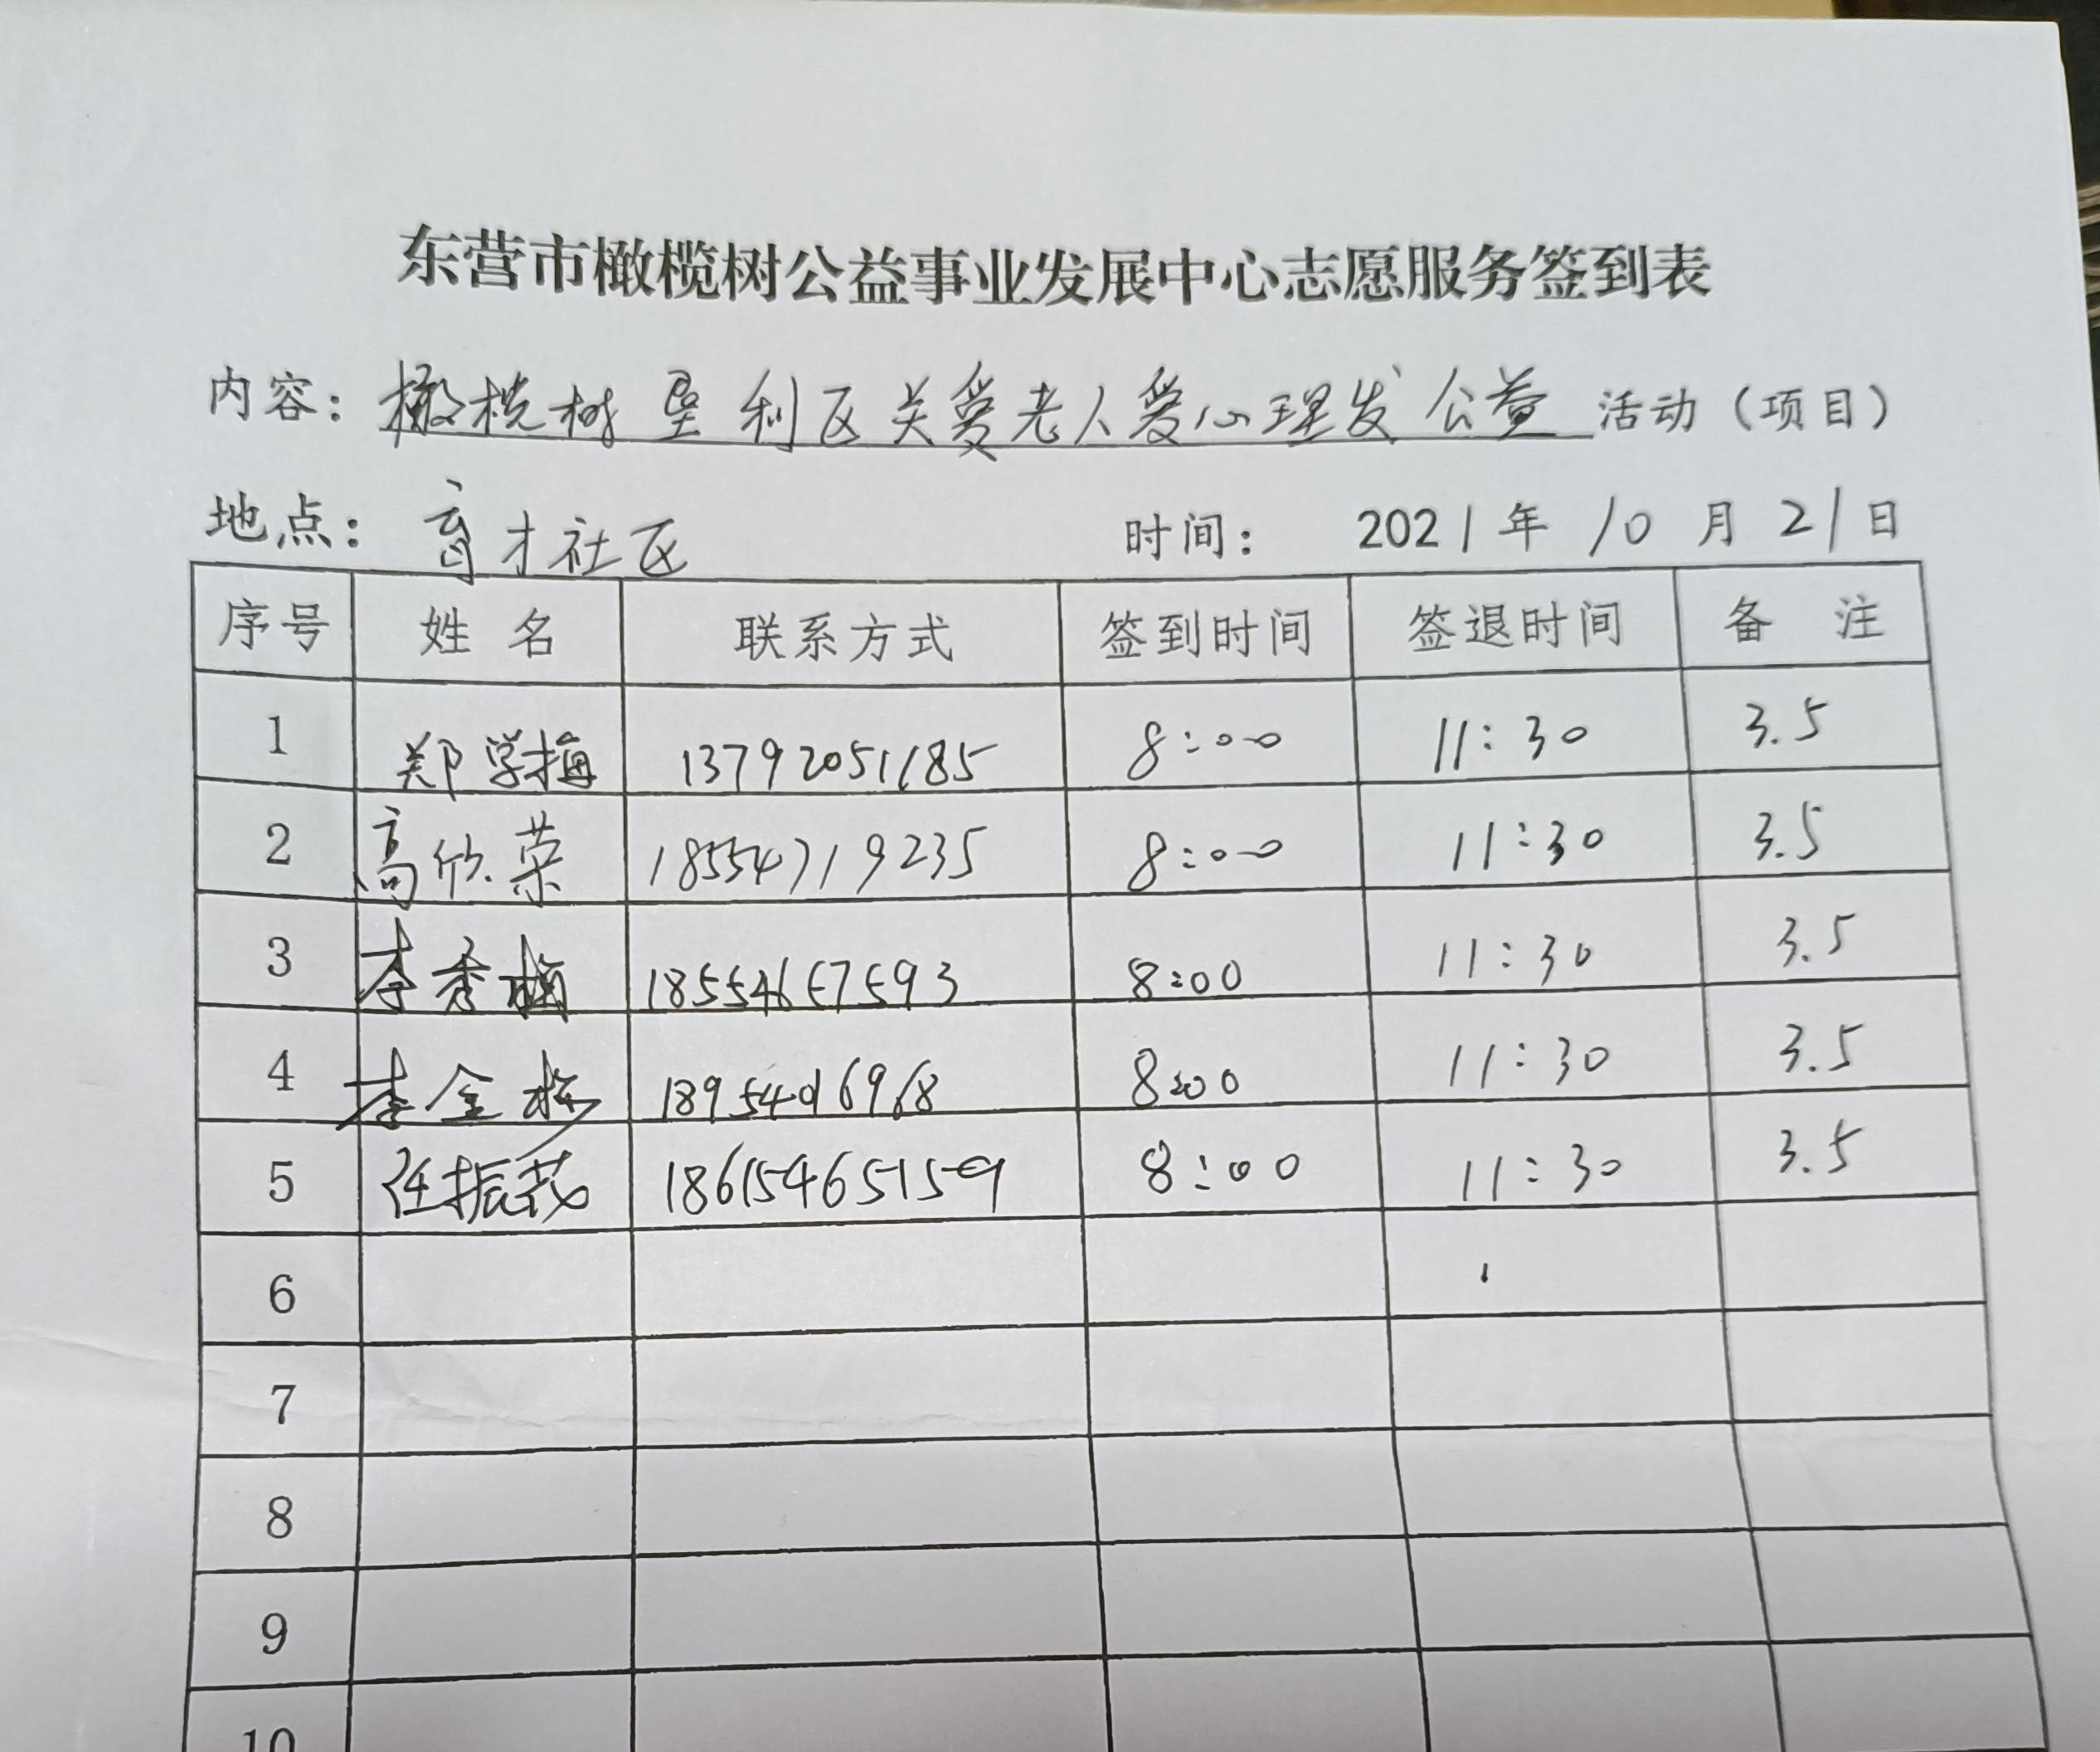 东营市橄榄树公益事业发展中心志愿服务签到表
内容：橄榄树垦利区关爱老人爱心理发公益活动（项目）
地点：育才社区 时间：2021年10月21日
序号 姓名 联系方式 签到时间 签退时间 备注
1 郑学梅 13792051185 8:00 11:30 3.5
2 高欣荣 18554719235 8:00 11:30 3.5
3 李秀梅 18554657593 8:00 11:30 3.5
4 李金 8:00 11:30 3.5
5 任振茂 18615465159 8:00 11:30 3.5
6
7
8
9
10